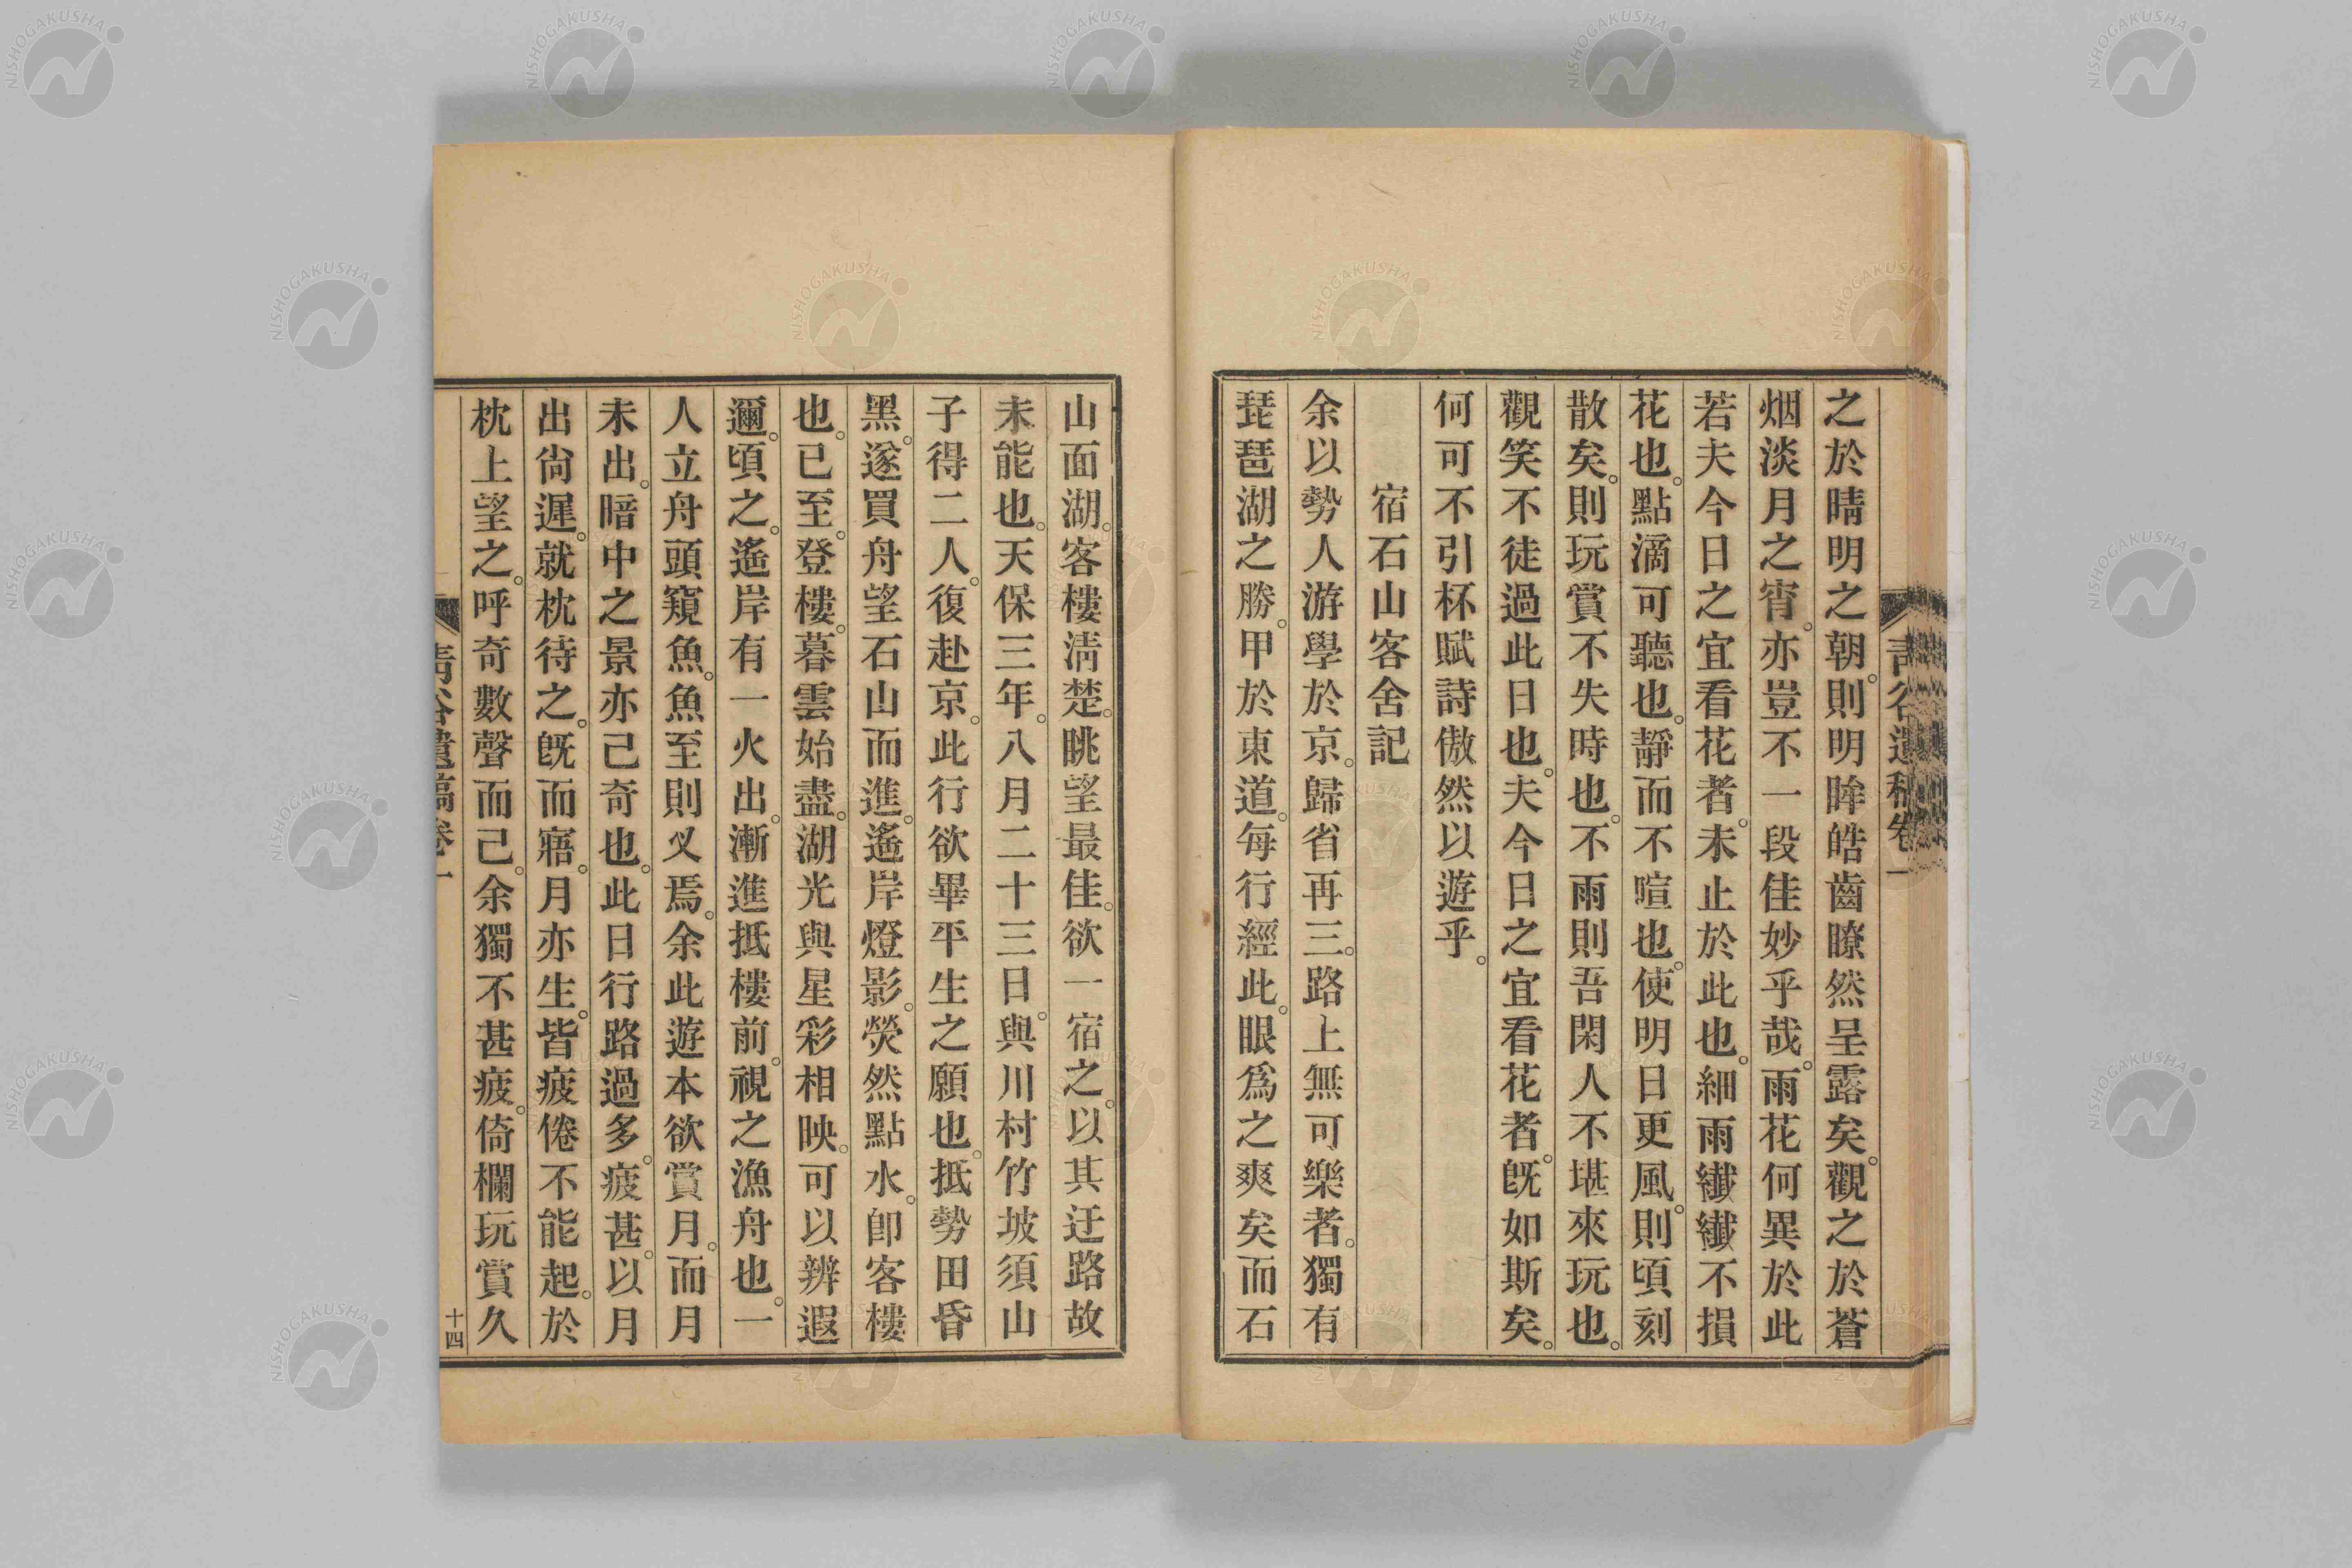 之於晴明之朝。則明眸皓齒瞭然呈露矣。觀之於蒼
烟淡月之宵。亦豈不一段佳妙乎哉。雨花何異於此
若夫今日之宜看花者。未止於此也。細雨纖纖不損
花也。點滴可聽也。靜而不喧也。使明日更風。則頃刻
散矣。則玩賞不失時也。不雨則吾閑人不堪來玩也。
觀笑不徒過此日也。夫今日之宜看花者。既如斯矣。
何可不引杯賦詩傲然以遊乎。
宿石山客舍記
余以勢人游學於京。歸省再三。路上無可樂者。獨有
琵琶湖之勝。甲於東道。每行經此。眼爲之爽矣而石
山面湖。客樓淸楚。眺望最佳。欲一宿之。以其迂路故
未能也。天保三年。八月二十三日。與川村竹坡須山
子得二人。復赴京。此行欲畢平生之願也。抵勢田昏
黑。遂買舟望石山而進。遙岸燈影。熒然點水。卽客樓
也。已至。登樓。暮雲始盡。湖光與星彩相映。可以辨遐
邇。頃之。遙岸有一火出。漸進抵樓前。視之漁舟也。一
人立舟頭窺魚。魚至則叉焉。余此遊本欲賞月。而月
未出。暗中之景亦已奇也。此日行路過多。疲甚。以月
出尙遲。就枕待之。既而寤。月亦生。皆疲倦不能起。於
枕上望之。呼奇數聲而已。余獨不甚疲。倚欄玩賞久
十四
NISHOGAKUSHA